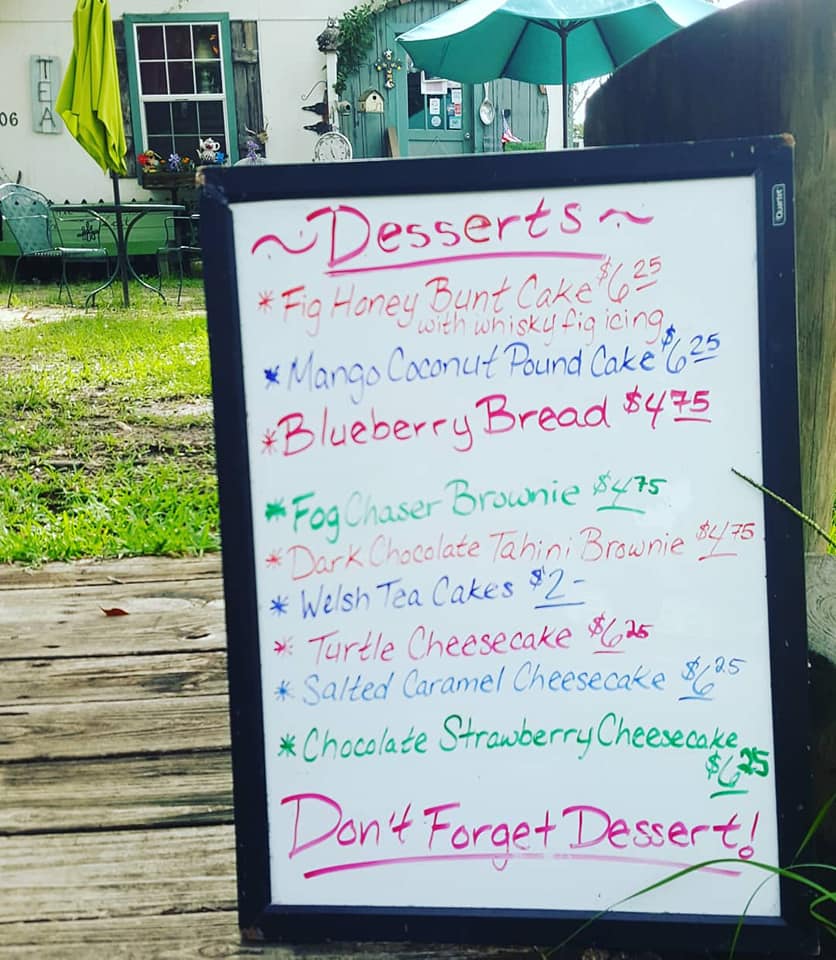 TEA
06
~Desserts~
* Fig Honey Bunt Cake $6.25
with whisky fig icing
* Mango Coconut Pound Cake $6.25
* Blueberry Bread $4.75
* Fog Chaser Brownie $4.75
* Dark Chocolate Tahini Brownie $4.75
* Welsh Tea Cakes $2-
* Turtle Cheesecake $6.25
* Salted Caramel Cheesecake $6.25
* Chocolate Strawberry Cheesecake
$6.25
Don't Forget Dessert!
Quartet